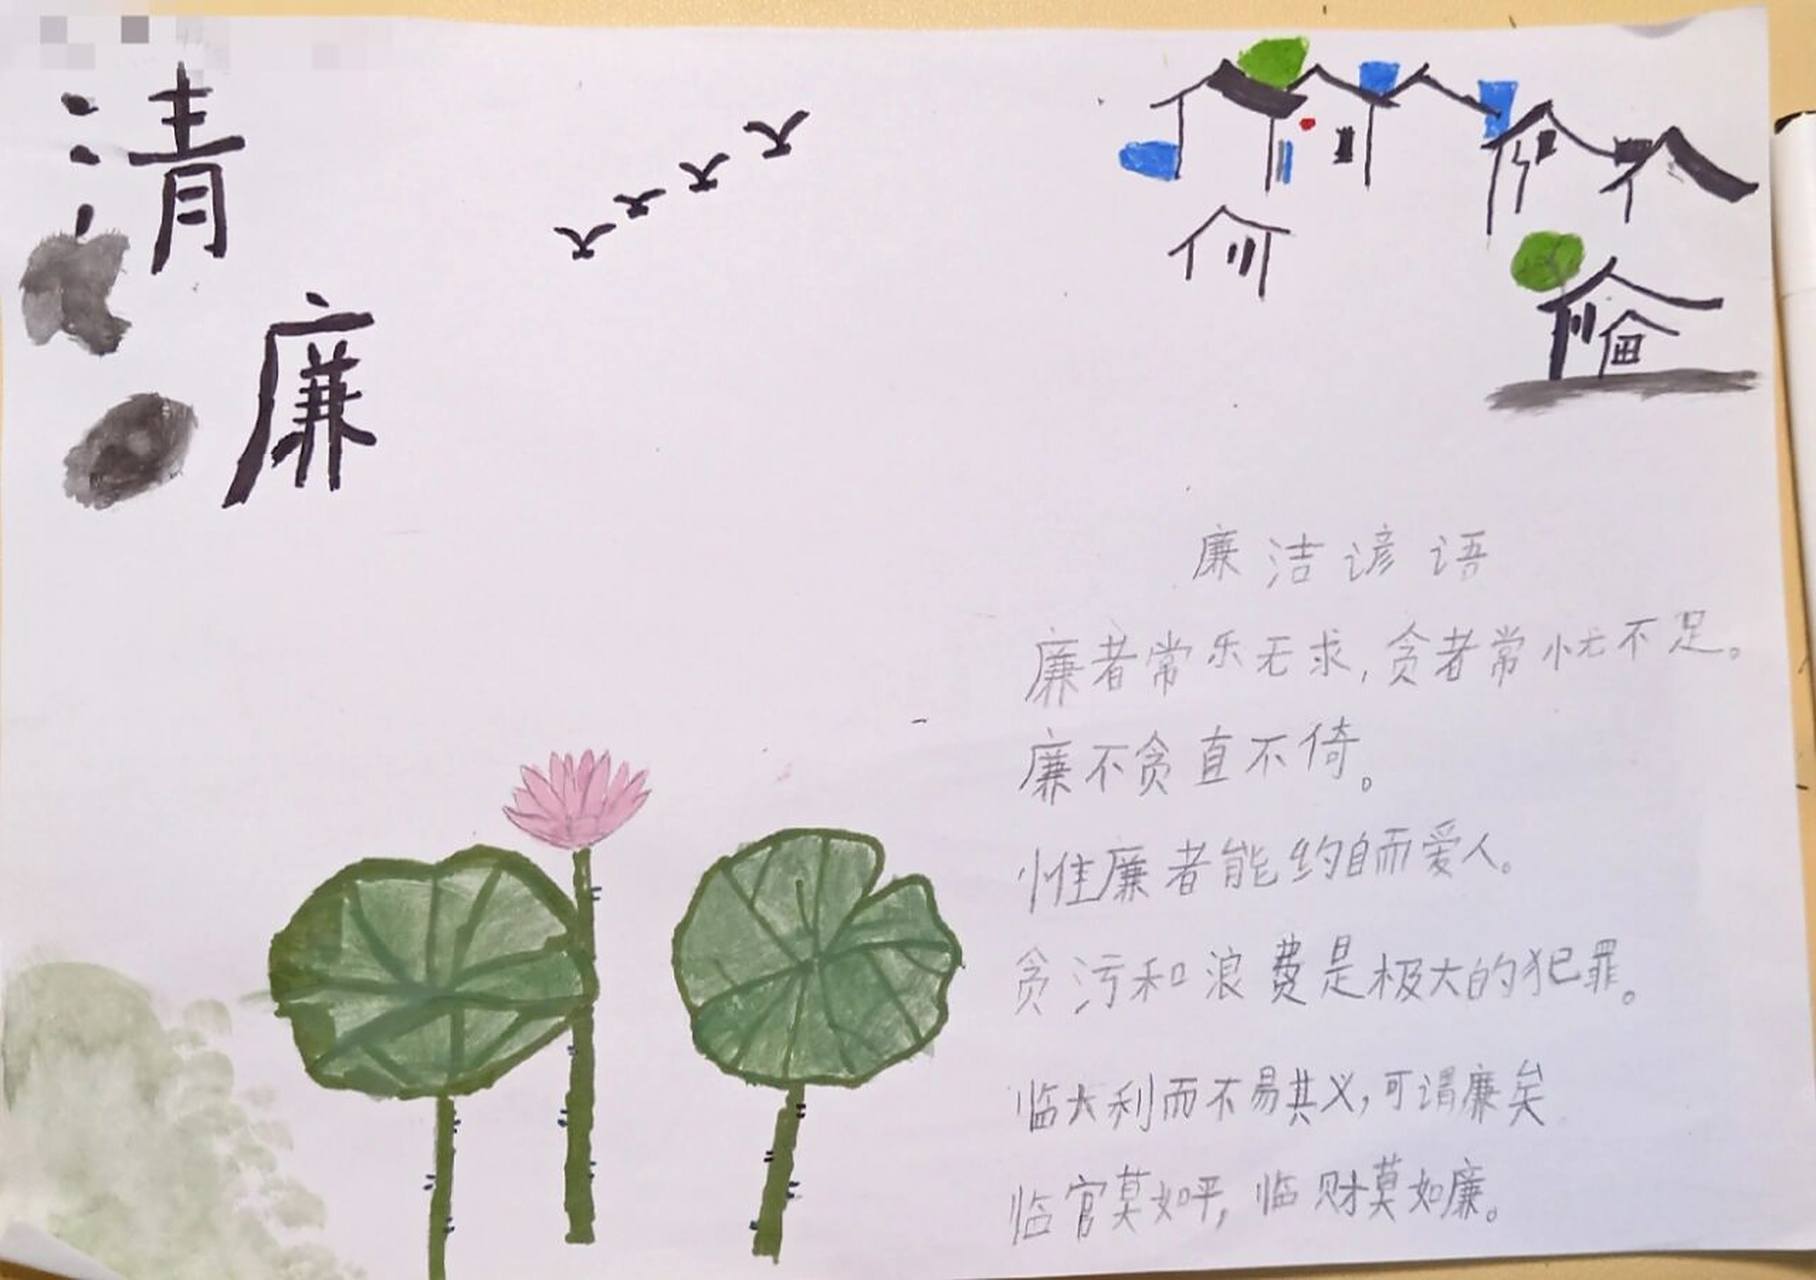 清
廉
廉洁谚语
廉者常乐无求,贪者常忧不足。
廉不贪直不倚。
惟廉者能约自而爱人。
贪污和浪费是极大的犯罪。
临大利而不易其义,可谓廉矣
临官莫如平,临财莫如廉。